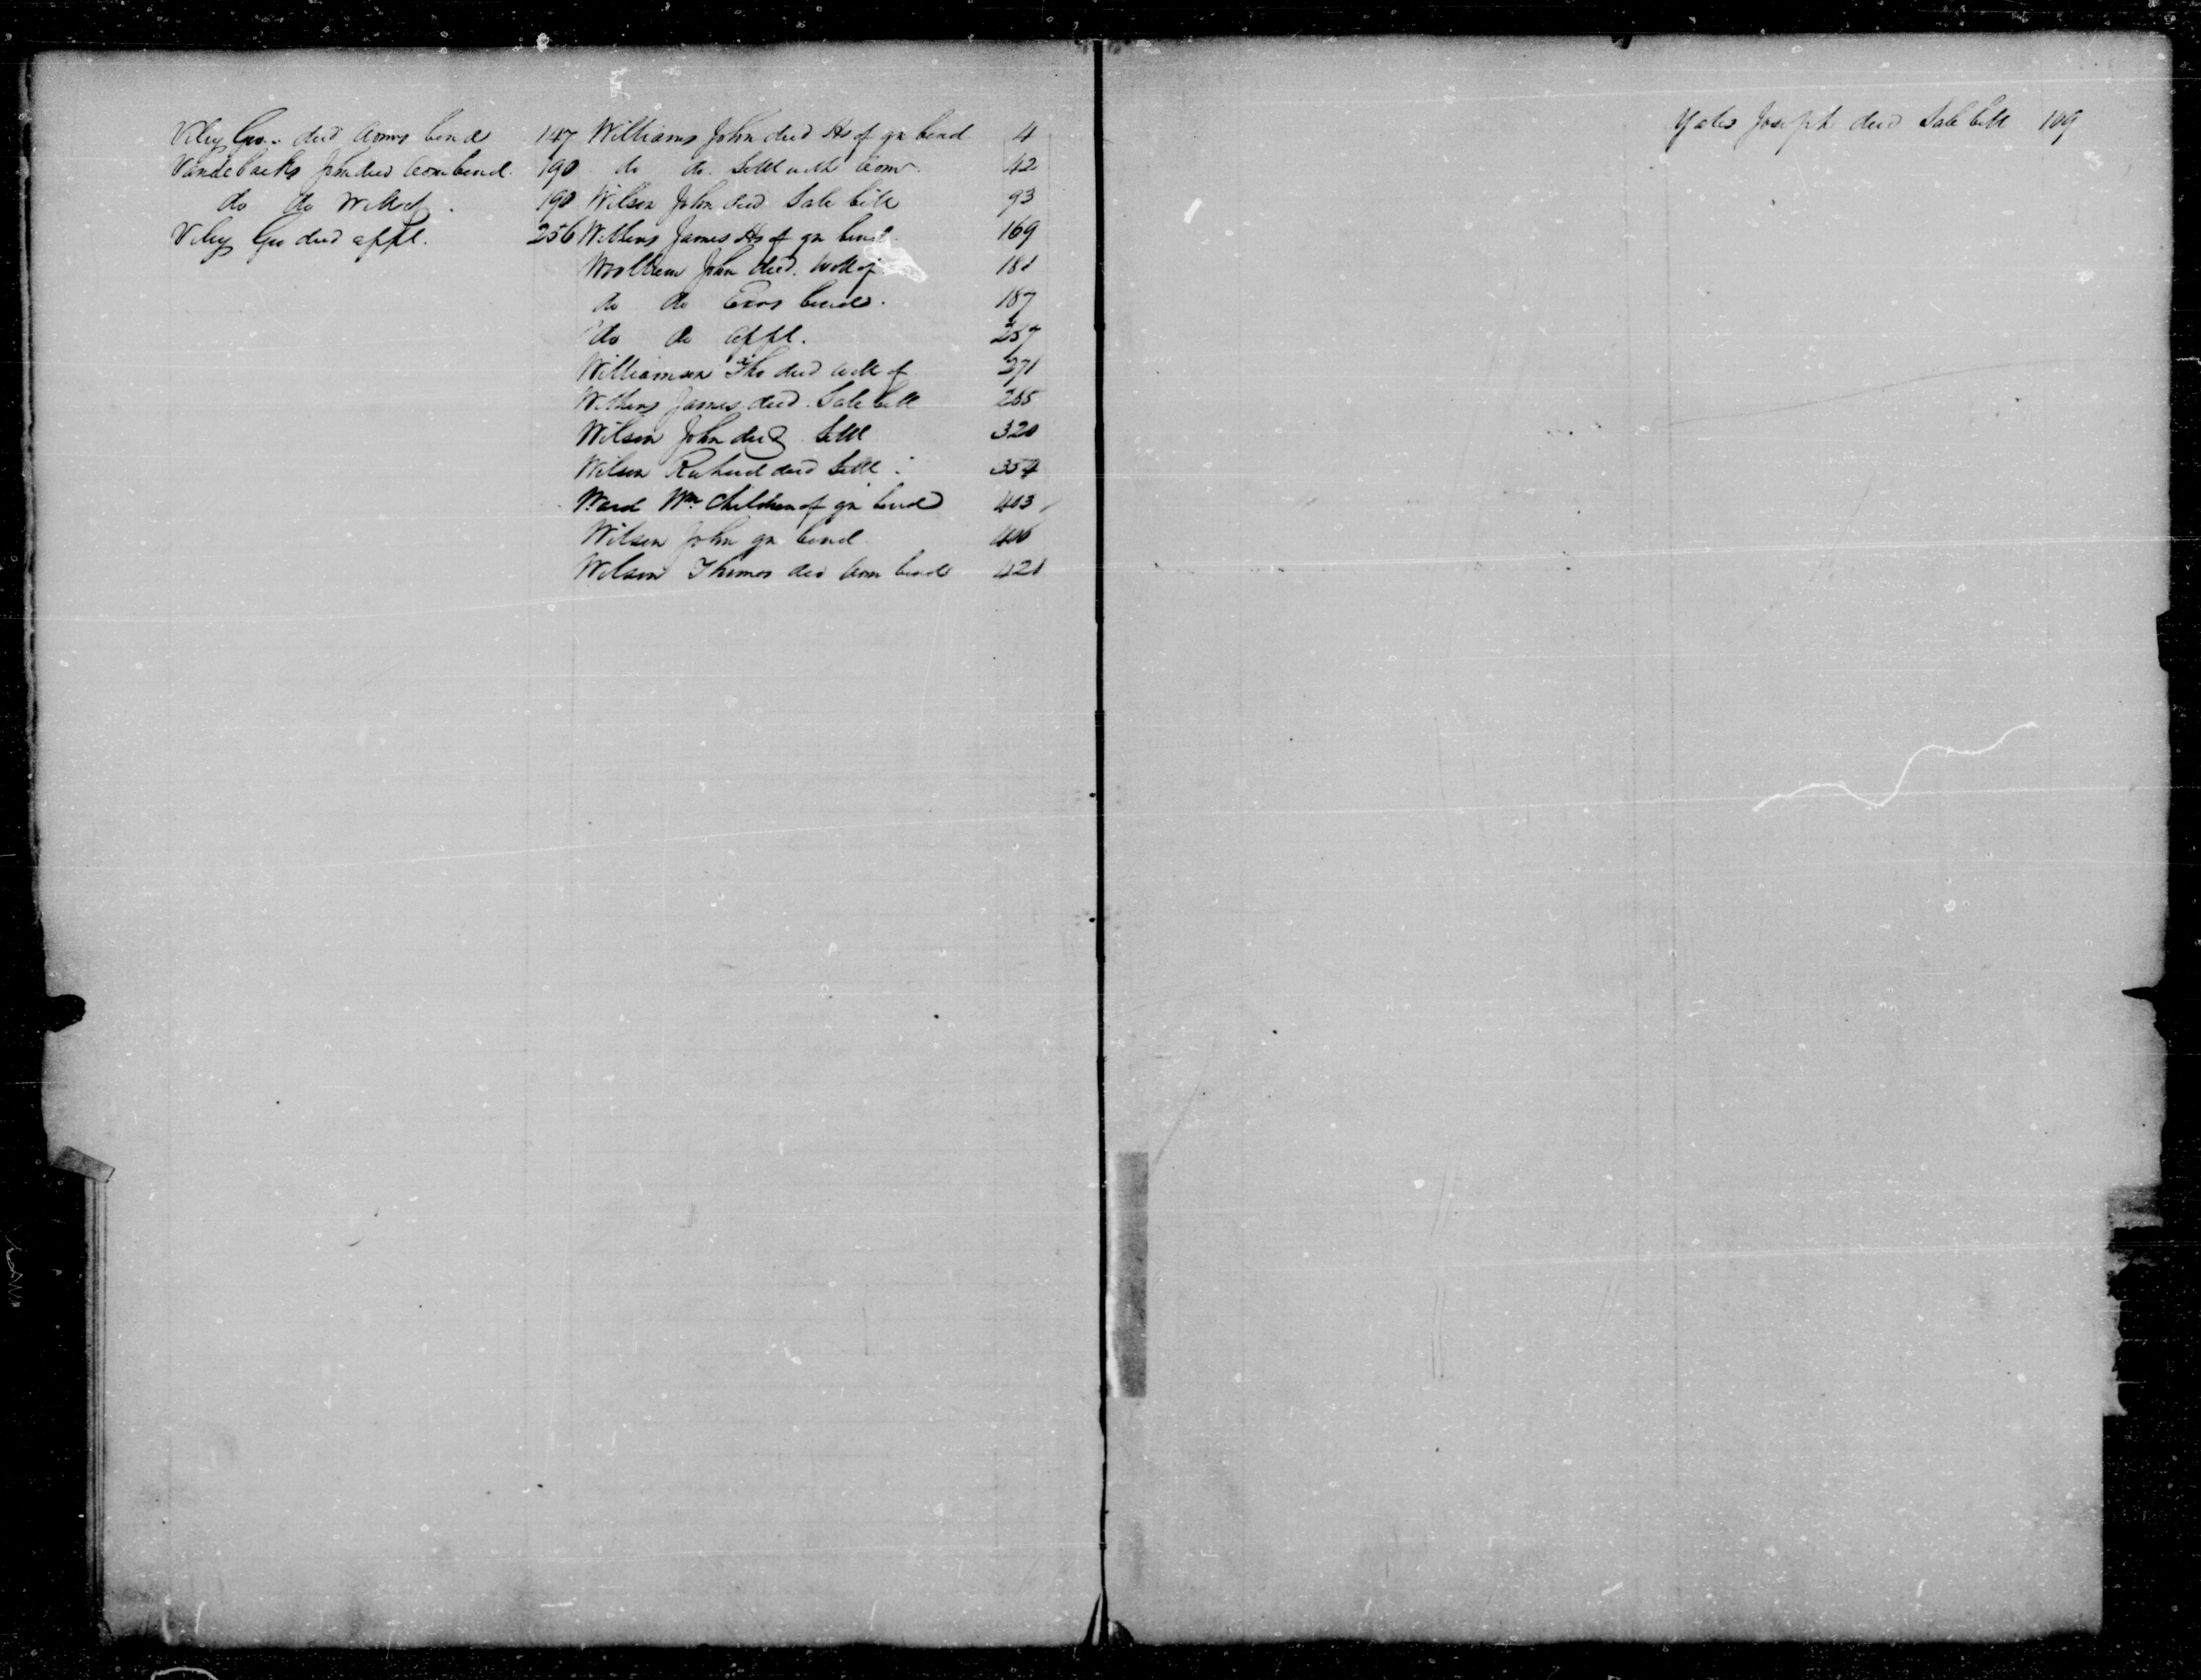 Viley Geo. decd Admrs bond 147
Vandebacks John decd Admr bond. 190
do do Will of. 190
Viley Geo decd appt. 256
Williams John decd Hs of gn bond 4
do do. Settl with Admr. 42
Wilson John decd Sale bill 93
Withers James Hs of gn bond. 169
John decd. Will of 181
do do Exors bond. 187
do do appt. 257
Williamson Tho decd will of 271
Withers James decd. Sale bill 285
Wilson John decd Settl 320
Wilson Richard decd Settl. 354
Ward Wm. Children of gn bond 403
Wilson John gn bond 406
Wilson Thomas decd Adm bond 421
Yates Joseph decd Sale bill 109